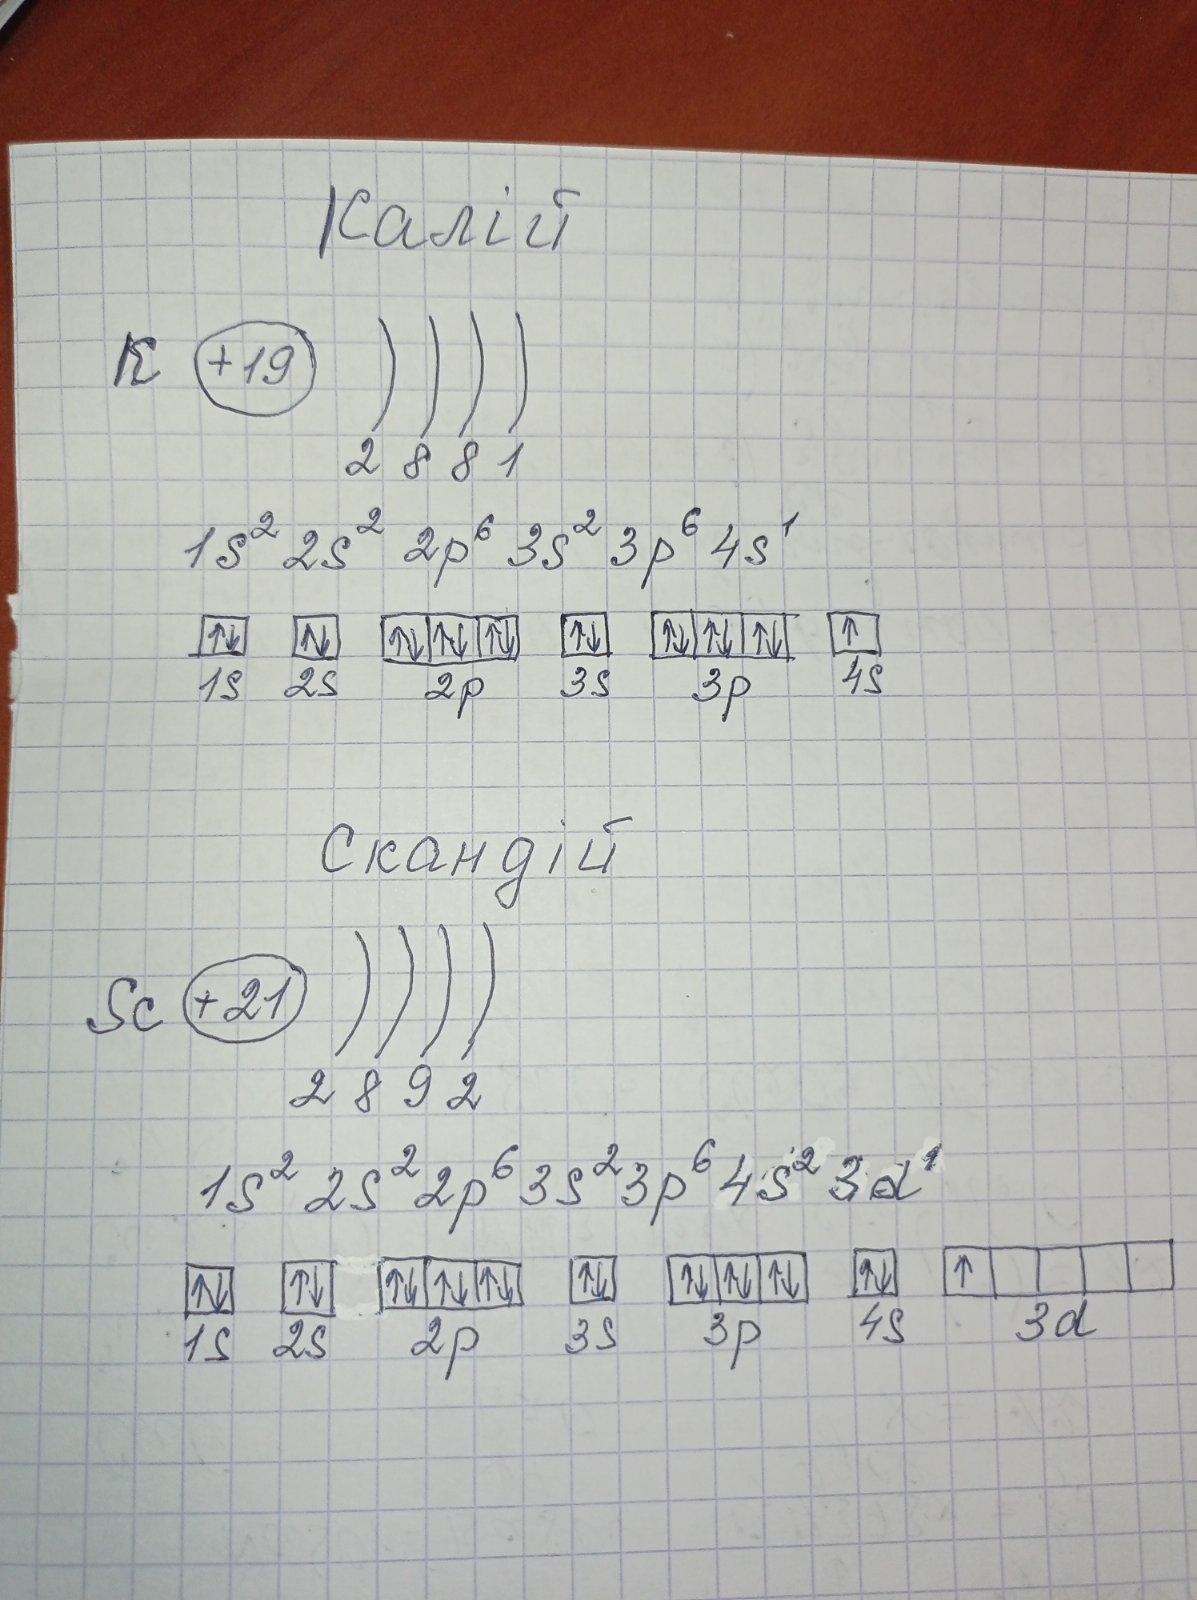 Калій
K +19
2 8 8 1
1s² 2s² 2p⁶ 3s² 3p⁶ 4s¹
↑↓ ↑↓ ↑↓ ↑↓ ↑↓ ↑↓ ↑↓ ↑↓ ↑↓ ↑
1s 2s 2p 3s 3p 4s
Скандій
Sc +21
2 8 9 2
1s² 2s² 2p⁶ 3s² 3p⁶ 4s² 3d¹
↑↓ ↑↓ ↑↓ ↑↓ ↑↓ ↑↓ ↑↓ ↑↓ ↑↓ ↑↓ ↑
1s 2s 2p 3s 3p 4s 3d